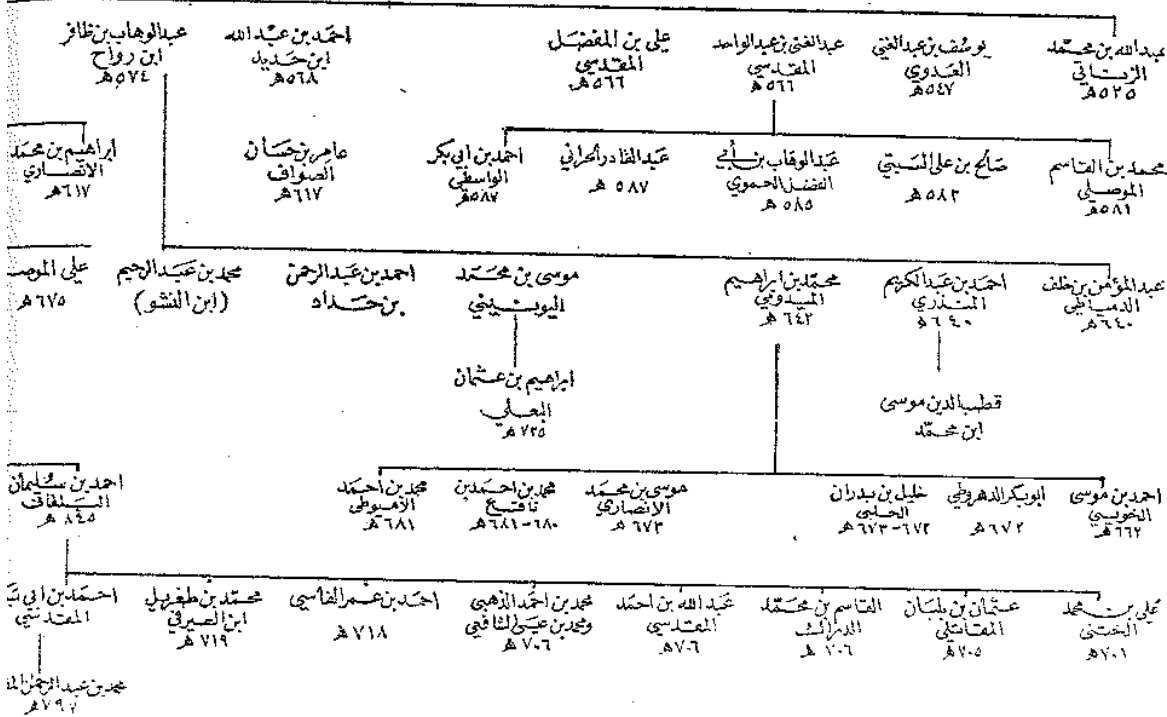 عبدالله بن محمد
الزناتي
٥٢٥ هـ
يوسف بن عبدالغني
العدوي
٥٤٧ هـ
عبدالغني بن عبدالواحد
المقدسي
٥٦٦ هـ
علي بن المفضل
المقدسي
٥٦٦ هـ
احمد بن عبدالله
ابن حديد
٥٦٨ هـ
عبدالوهاب بن ظافر
ابن رواح
٥٧٤ هـ
محمد بن القاسم
الموصلي
٥٨١ هـ
صالح بن علي السبتي
٥٨٢ هـ
عبدالوهاب بن أبي
الفضل الحموي
٥٨٥ هـ
عبدالقادر الحراني
٥٨٧ هـ
احمد بن ابي بكر
الواسطي
٥٨٧ هـ
عامر بن حسان
الصواف
٦١٧ هـ
ابراهيم بن محمد
الانصاري
٦١٧ هـ
عبدالمؤمن بن خلف
الدمياطي
٦٤٠ هـ
احمد بن عبدالكريم
المنذري
٦٤٠ هـ
محمد بن ابراهيم
الميدومي
٦٤٢ هـ
موسى بن محمد
اليونيني
احمد بن عبدالرحمن
بن حداد
محمد بن عبدالرحيم
(ابن النشو)
علي
٦٧٥ هـ
قطب الدين موسى
ابن محمد
ابراهيم بن عثمان
البعلي
٧٣٥ هـ
احمد بن موسى
الخويي
٦٦٢ هـ
ابوبكر الدهروطي
٦٧٢ هـ
خليل بن بدران
الحلبي
٦٧٢-٦٧٣ هـ
موسى بن محمد
الانصاري
٦٧٣ هـ
محمد بن احمد بن
نافع
٦٨٠-٦٨١ هـ
محمد بن احمد
الاميوطي
٦٨١ هـ
احمد بن سليمان
٨٤٥ هـ
علي بن محمد
الختني
٧٠١ هـ
عثمان بن بلبان
المقاتلي
٧٠٥ هـ
القاسم بن محمد
٧٠٦ هـ
عبدالله بن احمد
المقدسي
٧٠٦ هـ
محمد بن احمد الذهبي
ومحمد بن عيسى الشافعي
٧٠٦ هـ
احمد بن عمر الفاسي
٧١٨ هـ
محمد بن طغريل
ابن الصيرفي
٧١٩ هـ
احمد بن ابي
المقدسي
محمد بن عبدالرحمن
٧٩٧ هـ